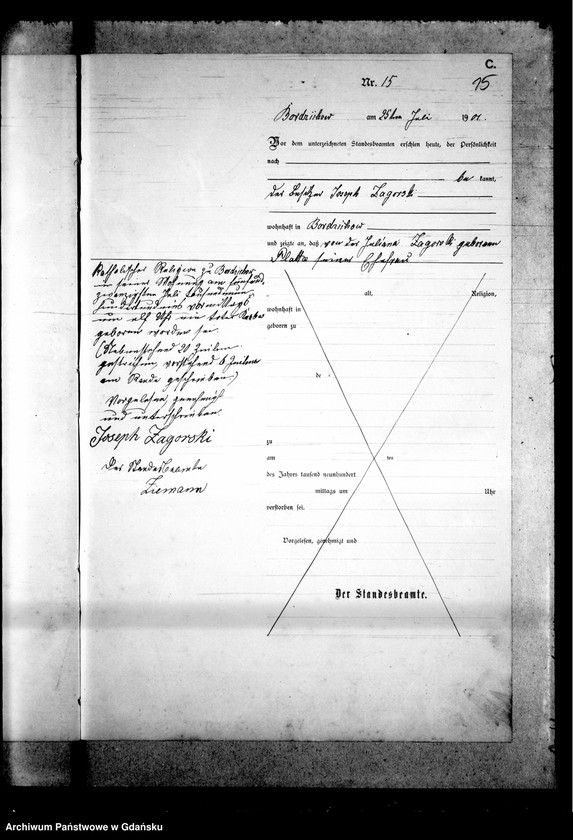 C.
Nr. 15
15
Bordzichow am 25ten Juli 1901.
Vor dem unterzeichneten Standesbeamten erschien heute, der Persönlichkeit
nach
be kannt,
der Besitzer Joseph Zagorski
wohnhaft in Bordzichow
und zeigte an, daß von der Juliana Zagorski geborenen
seiner Ehefrau
Katholischer Religion zu Bordzichow
in seiner Wohnung am fünfund
zwanzigsten Juli tausendneun
hundertundeins vormittags
um elf Uhr ein todter Knabe
geboren worden sei.
(Nebenstehend 20 Zeilen
gestrichen, vorstehend 6 Zeilen
am Rande geschrieben.)
Vorgelesen, genehmigt
und unterschrieben
Joseph Zagorski
Der Standesbeamte
Ziemann
alt, Religion,
wohnhaft in
geboren zu
de
zu
am ten
des Jahres tausend neunhundert
mittags um Uhr
verstorben sei.
Vorgelesen, genehmigt und
Der Standesbeamte.
Archiwum Państwowe w Gdańsku